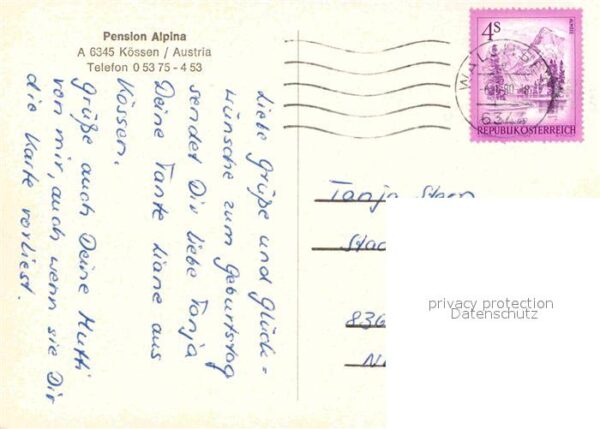 Pension Alpina
A 6345 Kössen / Austria
Telefon 0 53 75 - 4 53
Liebe Grüße und Glück-
wünsche zum Geburtstag
sendet Dir liebe Tanja
Deine Tante Liane aus
Kössen.
Grüße auch Deine Mutti
von mir, auch wenn sie Dir
die Karte vorliest.
4S
ALMSEE
REPUBLIK ÖSTERREICH
WALCHSEE
6344
Tanja Stern
Stad
836
N
privacy protection
Datenschutz